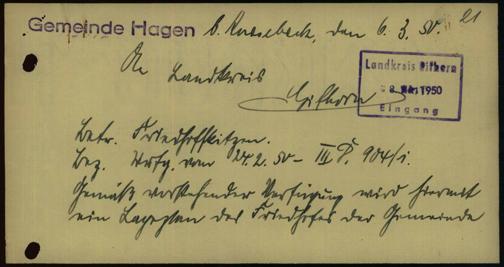 Gemeinde Hagen b. Knesebeck, den 6.3.50. 21
An
Landkreis
Gifhorn
Landkreis Gifhorn
8. Mrz. 1950
Eingang
Betr. Friedhofskizzen.
Bez. Vrfg. vom 24.2.50 - III P. 904/1.
Gemäß vorstehender Verfügung wird hiermit
ein Lageplan des Friedhofes der Gemeinde